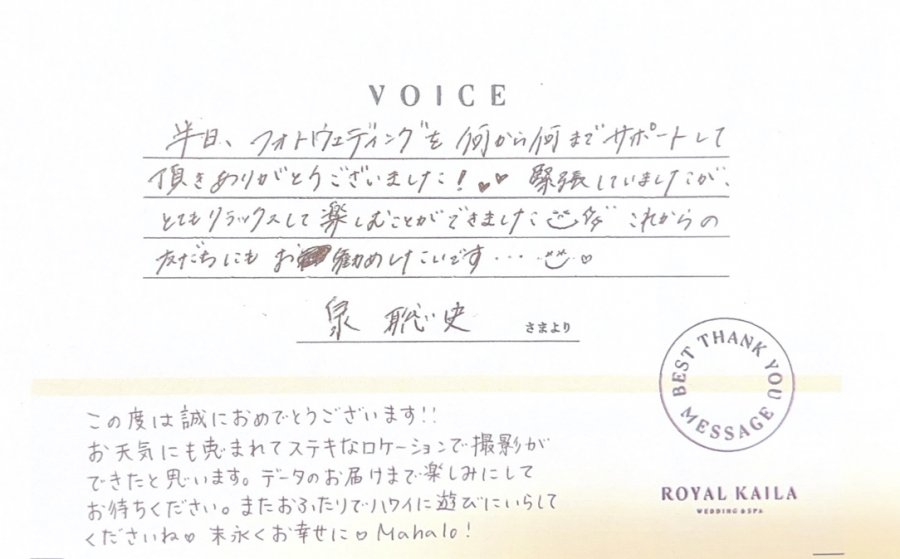 VOICE
半日、フォトウェディングを何から何までサポートして
頂きありがとうございました！♥♥ 緊張していましたが、
とてもリラックスして楽しむことができました これからの
友だちにもお勧めしたいです… ♡
泉 聡史 さまより
BEST THANK YOU MESSAGE
この度は誠におめでとうございます!!
お天気にも恵まれてステキなロケーションで撮影が
できたと思います。データのお届けまで楽しみにして
お待ちください。またおふたりでハワイに遊びにいらして
くださいね♡ 末永くお幸せに♡Mahalo!
ROYAL KAILA
WEDDING & SPA